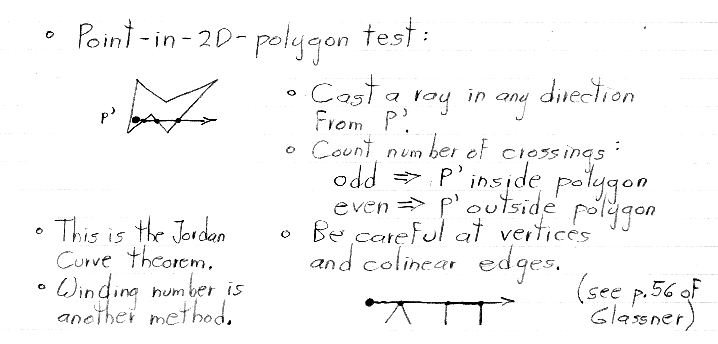 ◦ Point-in-2D-polygon test:
P'
◦ Cast a ray in any direction
From P'.
◦ Count number of crossings:
odd ⇒ P' inside polygon
even ⇒ P' outside polygon
◦ This is the Jordan
Curve theorem.
◦ Winding number is
another method.
◦ Be careful at vertices
and colinear edges.
(see p.56 of
Glassner)